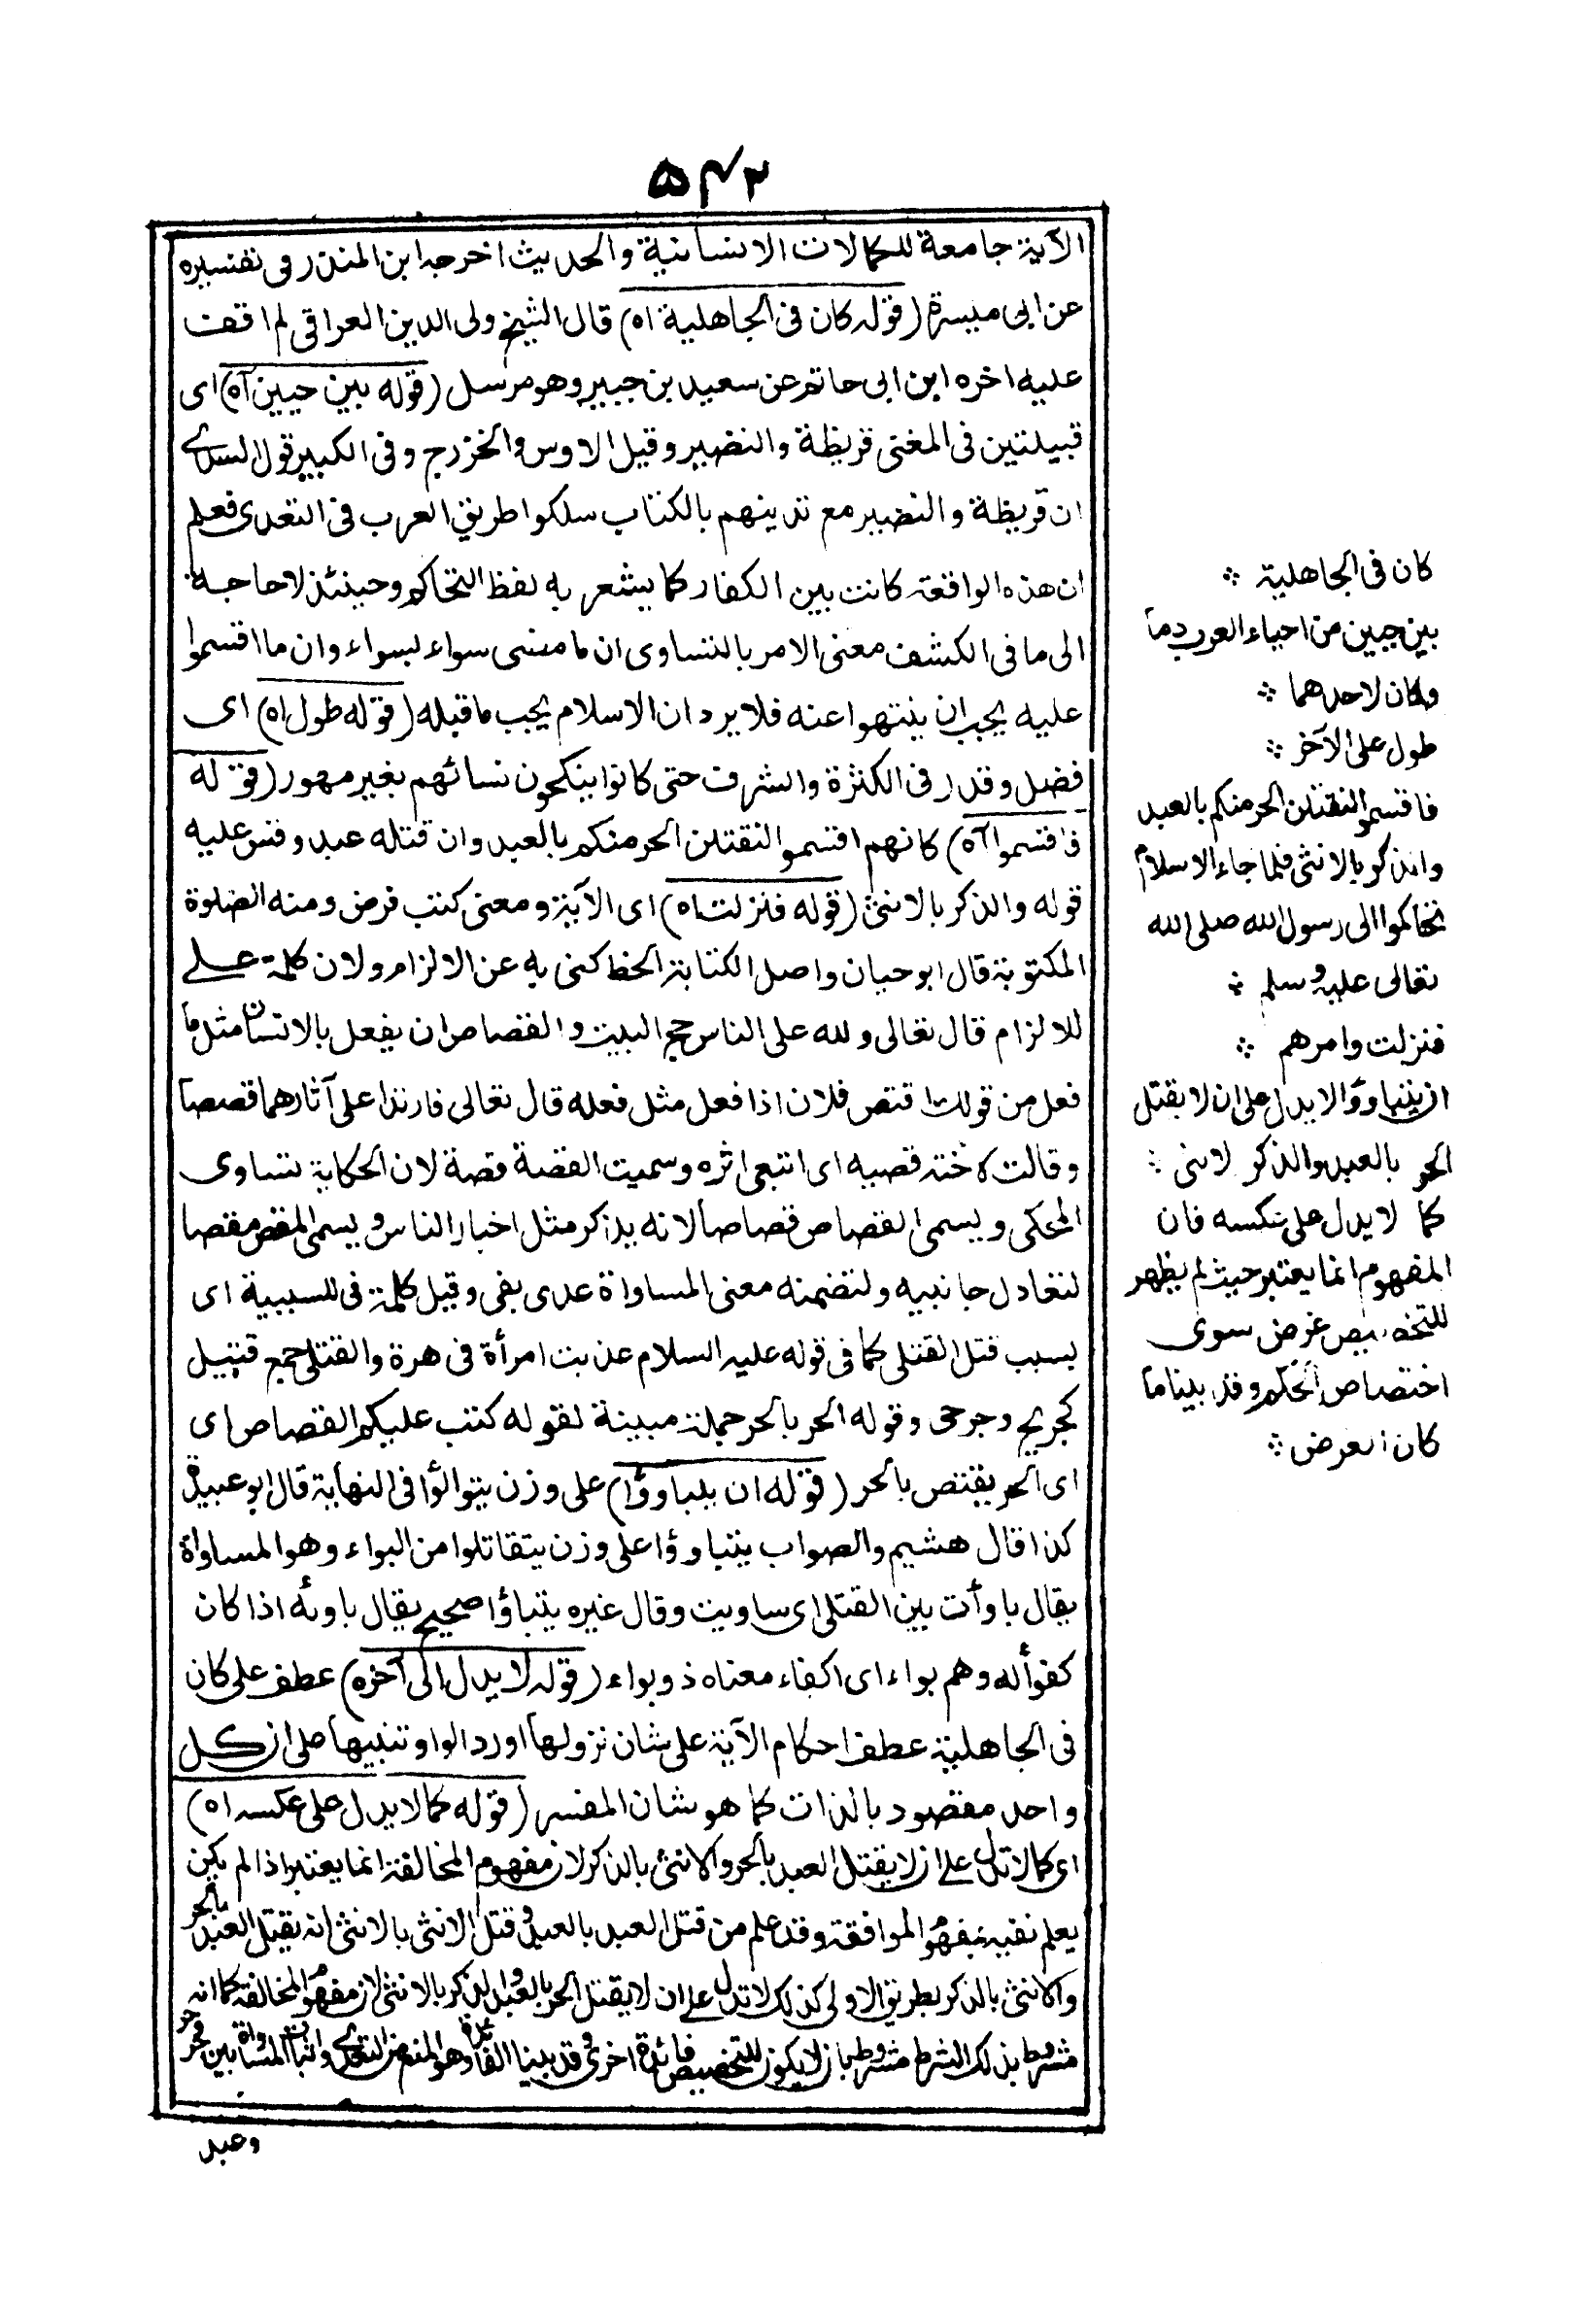 ۵۴۲
الآية جامعة للكمالات الانسانية والحديث اخرجه ابن المنذر فى تفسيره
عن ابى ميسرة (قوله كان فى الجاهلية اه) قال الشيخ ولى الدين العراقى لم اقف
عليه اخره ابن ابى حاتم عن سعيد بن جبير وهو مرسل (قوله بين حيين آه) اى
قبيلتين فى المغنى قريظة والنضير وقيل الاوس والخزرج وفى الكبير قول السدى
ان قريظة والنضير مع تدينهم بالكتاب سلكوا طريق العرب فى التعدى فعلم
ان هذه الواقعة كانت بين الكفار كما يشعر به لفظ التحاكم وحينئذ لا حاجة
الى ما فى الكشف معنى الامر بالتساوى ان ما مضى سواء بسواء وان ما اقسموا
عليه يجب ان ينتهوا عنه فلا يرد ان الاسلام يجب ما قبله (قوله طول اه) اى
فضل وقدر فى الكثرة والشرف حتى كانوا ينكحون نسائهم بغير مهور (قوله
فاقسموا آه) كانهم اقسموا لنقتلن الحر منكم بالعبد وان قتله عبد وقس عليه
قوله والذكر بالانثى (قوله فنزلت اه) اى الآية ومعنى كتب فرض ومنه الصلوة
المكتوبة قال ابوحيان واصل الكتابة الخط كنى به عن الالزام ولان كلمة على
للالزام قال تعالى ولله على الناس حج البيت والقصاص ان يفعل بالانسان مثل ما
فعل من قولك اقتص فلان اذا فعل مثل فعله قال تعالى فارتدا على آثارهما قصصا
وقالت لاخته قصيه اى اتبعى اثره وسميت القصة قصة لان الحكاية تساوى
المحكى ويسمى القصاص قصاصا لانه يذكر مثل اخبار الناس ويسمى المقص مقصا
لتعادل جانبيه ولتضمنه معنى المساواة عدى بفى وقيل كلمة فى للسببية اى
بسبب قتل القتلى كما فى قوله عليه السلام عذبت امرأة فى هرة والقتلى جمع قتيل
كجريح وجرحى وقوله الحر بالحر جملة مبينة لقوله كتب عليكم القصاص اى
اى الحر يقتص بالحر (قوله ان يتباوؤا) على وزن يتوالؤا فى النهاية قال ابو عبيدة
كذا قال هشيم والصواب يتباوؤا على وزن يتقاتلوا من البواء وهو المساواة
يقال باوأت بين القتلى اى ساويت وقال غيره يتباؤا صحيح يقال باوئه اذا كان
كفوأ له وهم بواء اى اكفاء معناه ذو بواء (قوله لا يدل الى آخره) عطف على كان
فى الجاهلية عطف احكام الآية على شان نزولها اورد الواو تنبيها على ان كل
واحد مقصود بالذات كما هو شان المفسر (قوله كما لا يدل على عكسه اه)
اى كما لا تدل على ان لا يقتل العبد بالحر والانثى بالذكر لان مفهوم المخالفة انما يعتبر اذا لم يكن
يعلم نفيه بمفهوم الموافقة وقد علم من قتل العبد بالعبد وقتل الانثى بالانثى انه يقتل العبد بالحر
والانثى بالذكر بطريق الاولى كذلك لا تدل على ان لا يقتل الحر بالعبد والذكر بالانثى لان مفهوم المخالفة كما انه
مشروط بذلك الشرط مشروط بان لا يكون للتخصيص فائدة اخرى وقد بينا الفائدة وهو المنع من التعدى واثبات المساواة بين حر وحر
وعبد
كان فى الجاهلية
بين حيين من احياء العرب دما
وكان لاحدهما
طول على الآخر
فاقسموا لنقتلن الحر منكم بالعبد
والذكر بالانثى فلما جاء الاسلام
تحاكموا الى رسول الله صلى الله
تعالى عليه وسلم
فنزلت وامرهم
ان يتباووا ولا يدل على ان لا يقتل
الحر بالعبد والذكر لانثى
كما لا يدل على عكسه فان
المفهوم انما يعتبر حيث لم يظهر
للتخصيص غرض سوى
اختصاص الحكم وقد بينا ما
كان الغرض